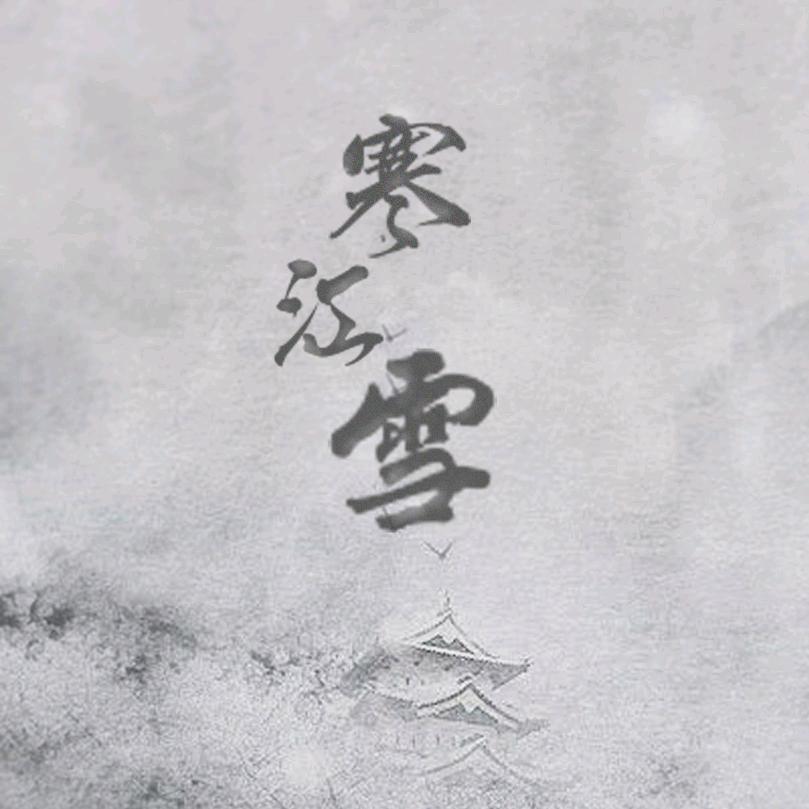 寒江雪